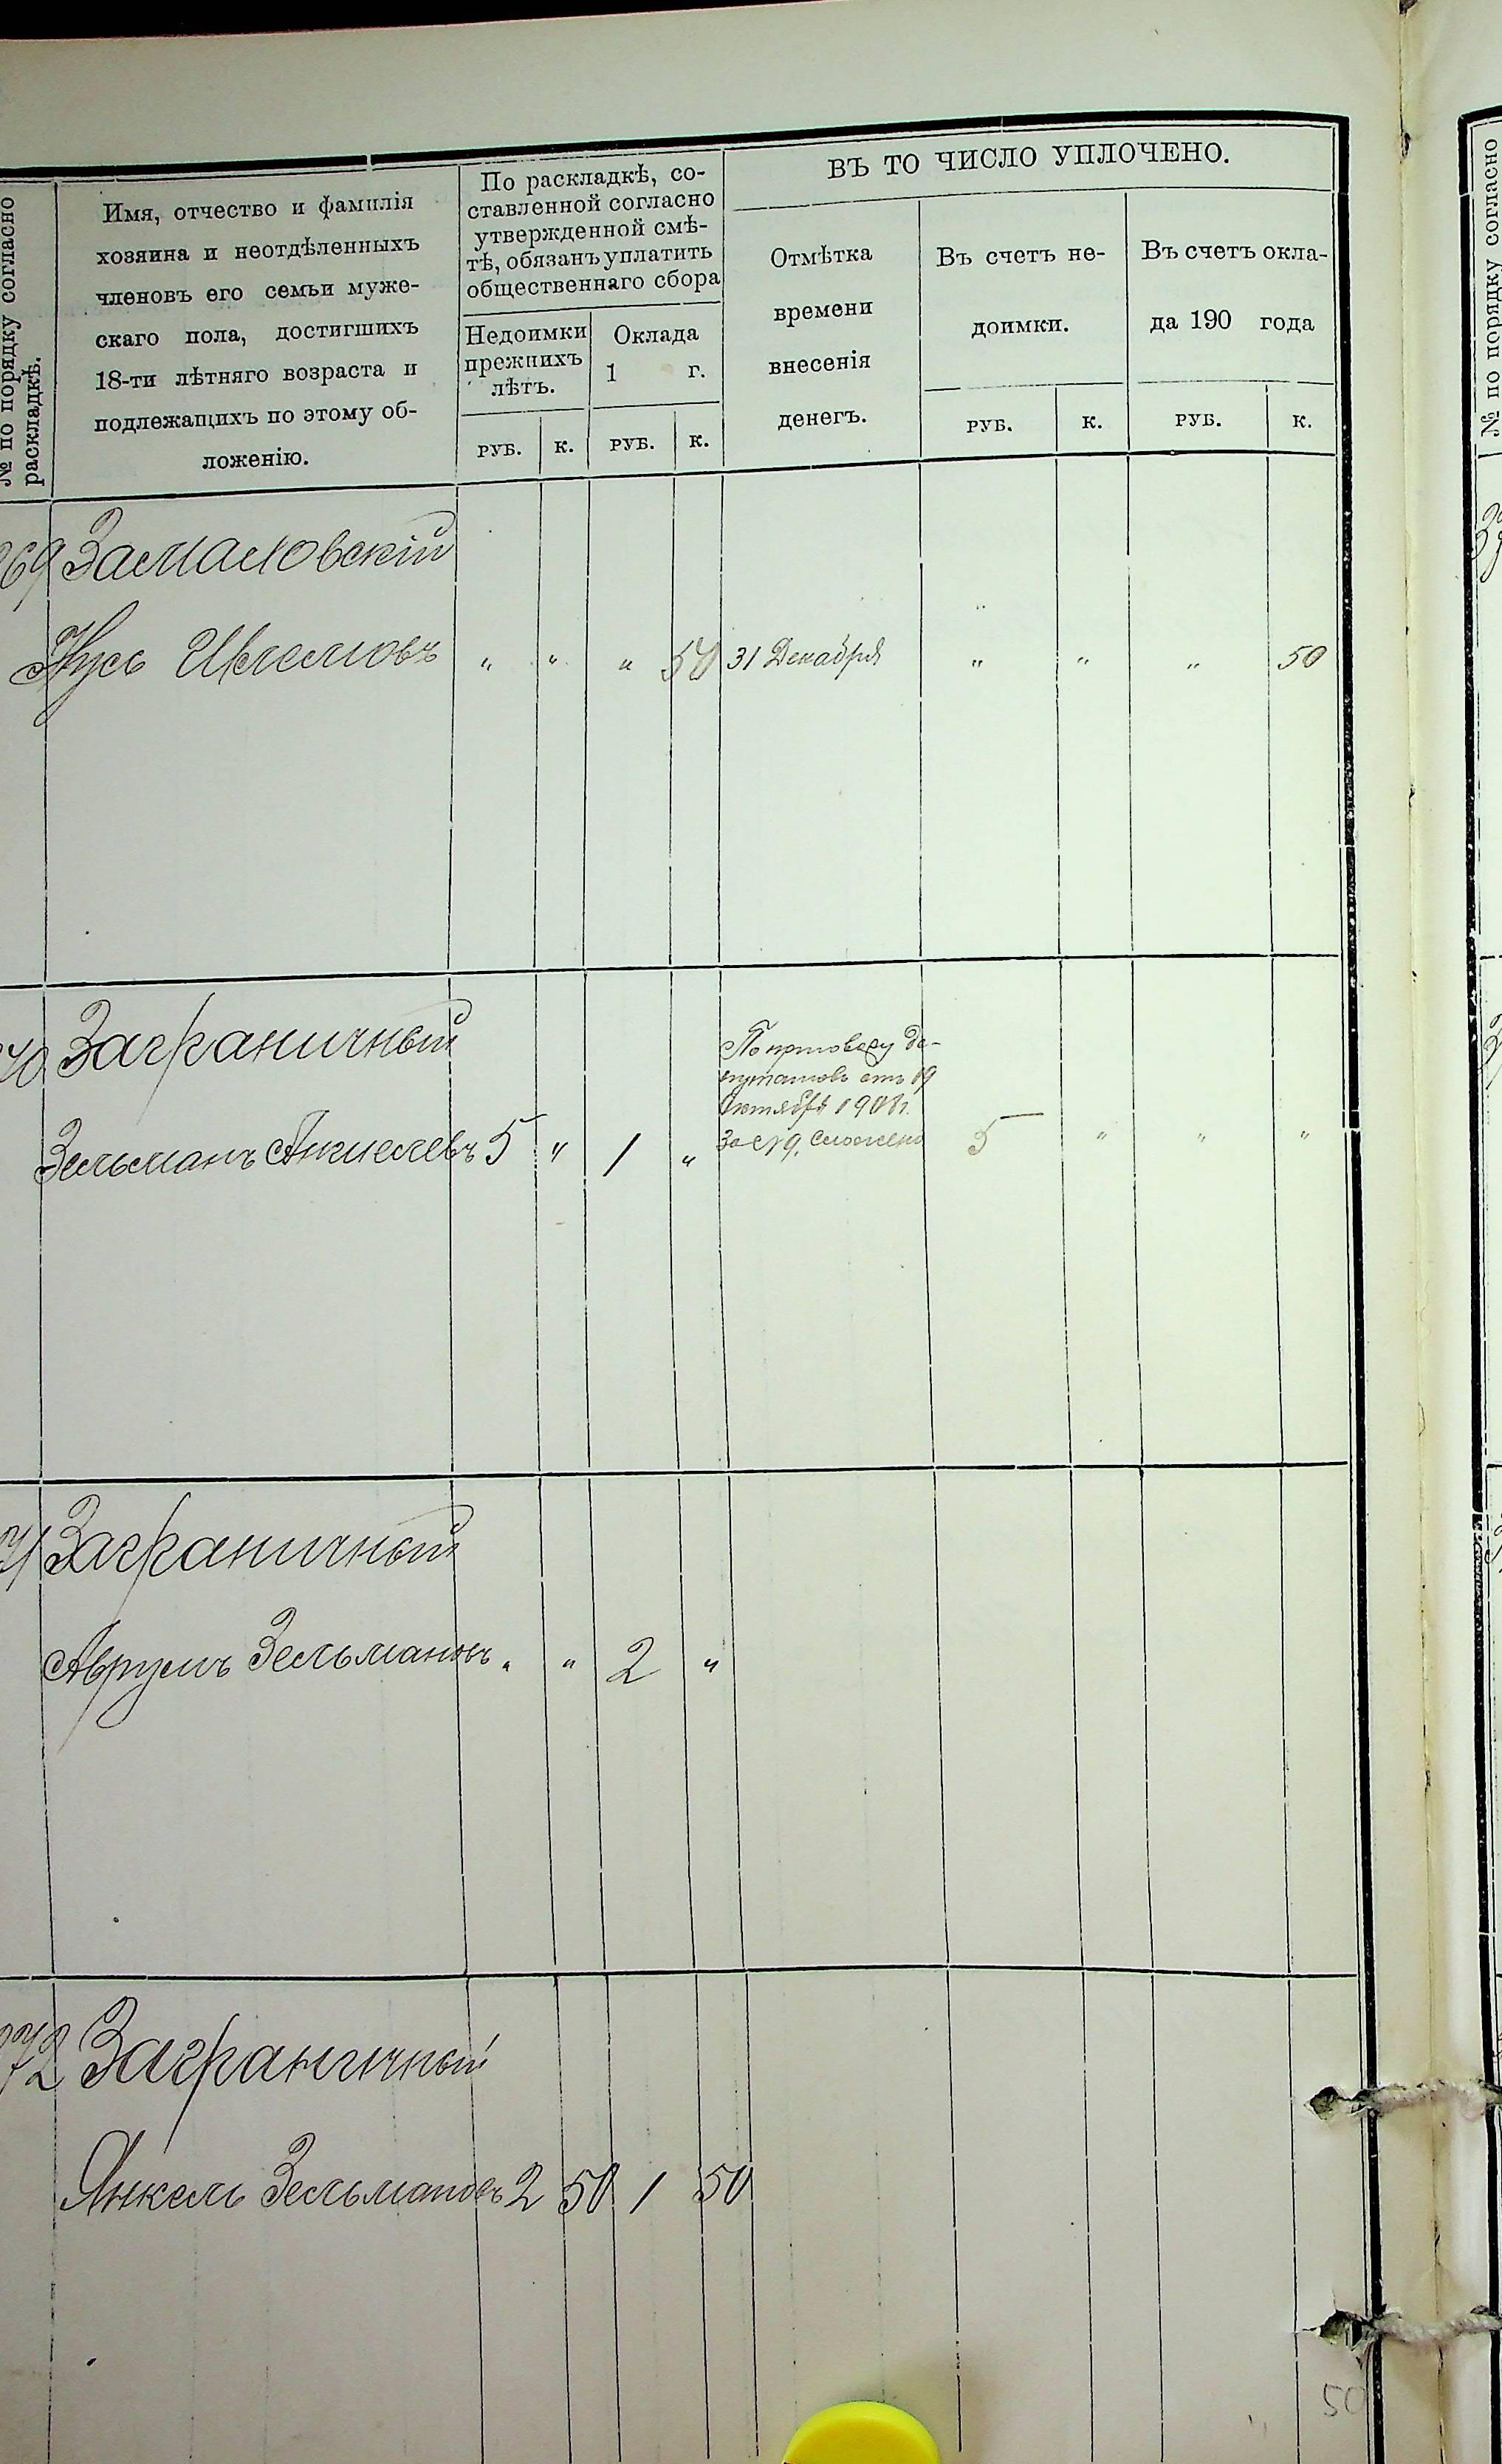 № по порядку согласно
раскладкѣ.
Имя, отчество и фамилія
хозяина и неотдѣленныхъ
членовъ его семьи муже-
скаго пола, достигшихъ
18-ти лѣтняго возраста и
подлежащихъ по этому об-
ложенію.
По раскладкѣ, со-
ставленной согласно
утвержденной смѣ-
тѣ, обязанъ уплатить
общественнаго сбора
Недоимки
прежнихъ
лѣтъ.
Оклада
1 г.
РУБ. К. РУБ. К.
ВЪ ТО ЧИСЛО УПЛОЧЕНО.
Отмѣтка
времени
внесенія
денегъ.
Въ счетъ не-
доимки.
РУБ. К.
Въ счетъ окла-
да 190 года
РУБ. К.
269 Замаловскій
Нусь " " " 50 31 Декабря " " " 50
70 Заграничный
Зельманъ 5 " 1 " 5 " " "
По приговору де-
путатовъ отъ 19
Октября 1908 г.
за №9, сложено
71 Заграничный
Аврумъ Зельмановъ " " 2 "
272 Заграничный
Янкель Зельмановъ 2 50 1 50
" 50
№ по порядку согласно